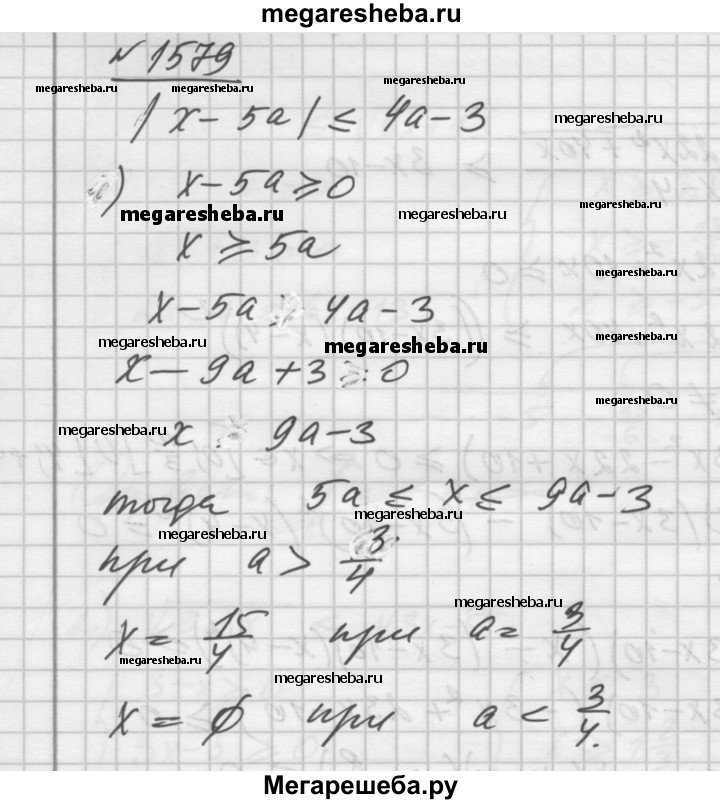 megaresheba.ru
№ 1579
megaresheba.ru megaresheba.ru megaresheba.ru
|x - 5a| ≤ 4a - 3 megaresheba.ru
) x - 5a ≥ 0
megaresheba.ru megaresheba.ru megaresheba.ru
x ≥ 5a
megaresheba.ru
x - 5a 4a - 3
megaresheba.ru megaresheba.ru megaresheba.ru
x - 9a + 3 0
megaresheba.ru
megaresheba.ru x 9a - 3
тогда 5a ≤ x ≤ 9a - 3
megaresheba.ru
megaresheba.ru
при a > 3/4
megaresheba.ru
x = 15/4 при a = 3/4
megaresheba.ru
megaresheba.ru
x = ∅ при a < 3/4.
Мегарешеба.ру